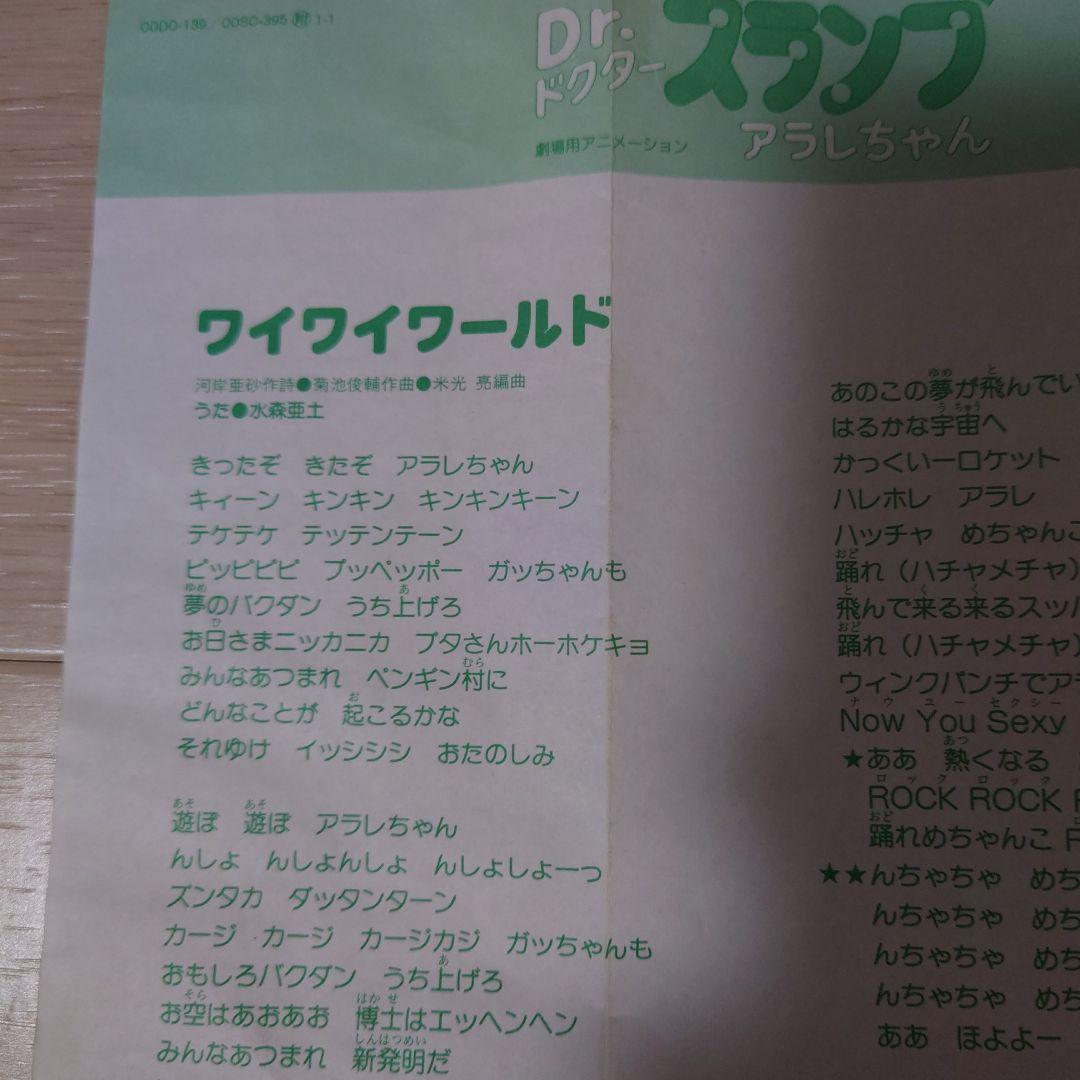 CODC-139／COSC-395 ㊞ 1-1
Dr.
ドクター
スランプ
アラレちゃん
劇場用アニメーション
ワイワイワールド
河岸亜砂作詩●菊池俊輔作曲●米光 亮編曲
うた●水森亜土
きったぞ きたぞ アラレちゃん
キィーン キンキン キンキンキーン
テケテケ テッテンテーン
ピッピピピ プッペッポー ガッちゃんも
夢のバクダン うち上げろ
お日さまニッカニカ ブタさんホーホケキョ
みんなあつまれ ペンギン村に
どんなことが 起こるかな
それゆけ イッシシシ おたのしみ
遊ぼ 遊ぼ アラレちゃん
んしょ んしょんしょ んしょしょーっ
ズンタカ ダッタンターン
カージ カージ カージカジ ガッちゃんも
おもしろバクダン うち上げろ
お空はあおあお 博士はエッヘンヘン
みんなあつまれ 新発明だ
あのこの夢が飛んでい
はるかな宇宙へ
かっくいーロケット
ハレホレ アラレ
ハッチャ めちゃんこ
踊れ（ハチャメチャ）
飛んで来る来るスッパ
踊れ（ハチャメチャ）
ウィンクパンチでアラ
Now You Sexy
★ああ 熱くなる
ROCK ROCK R
踊れめちゃんこ
★★んちゃちゃ めち
んちゃちゃ めち
んちゃちゃ めち
んちゃちゃ めち
ああ ほよよー